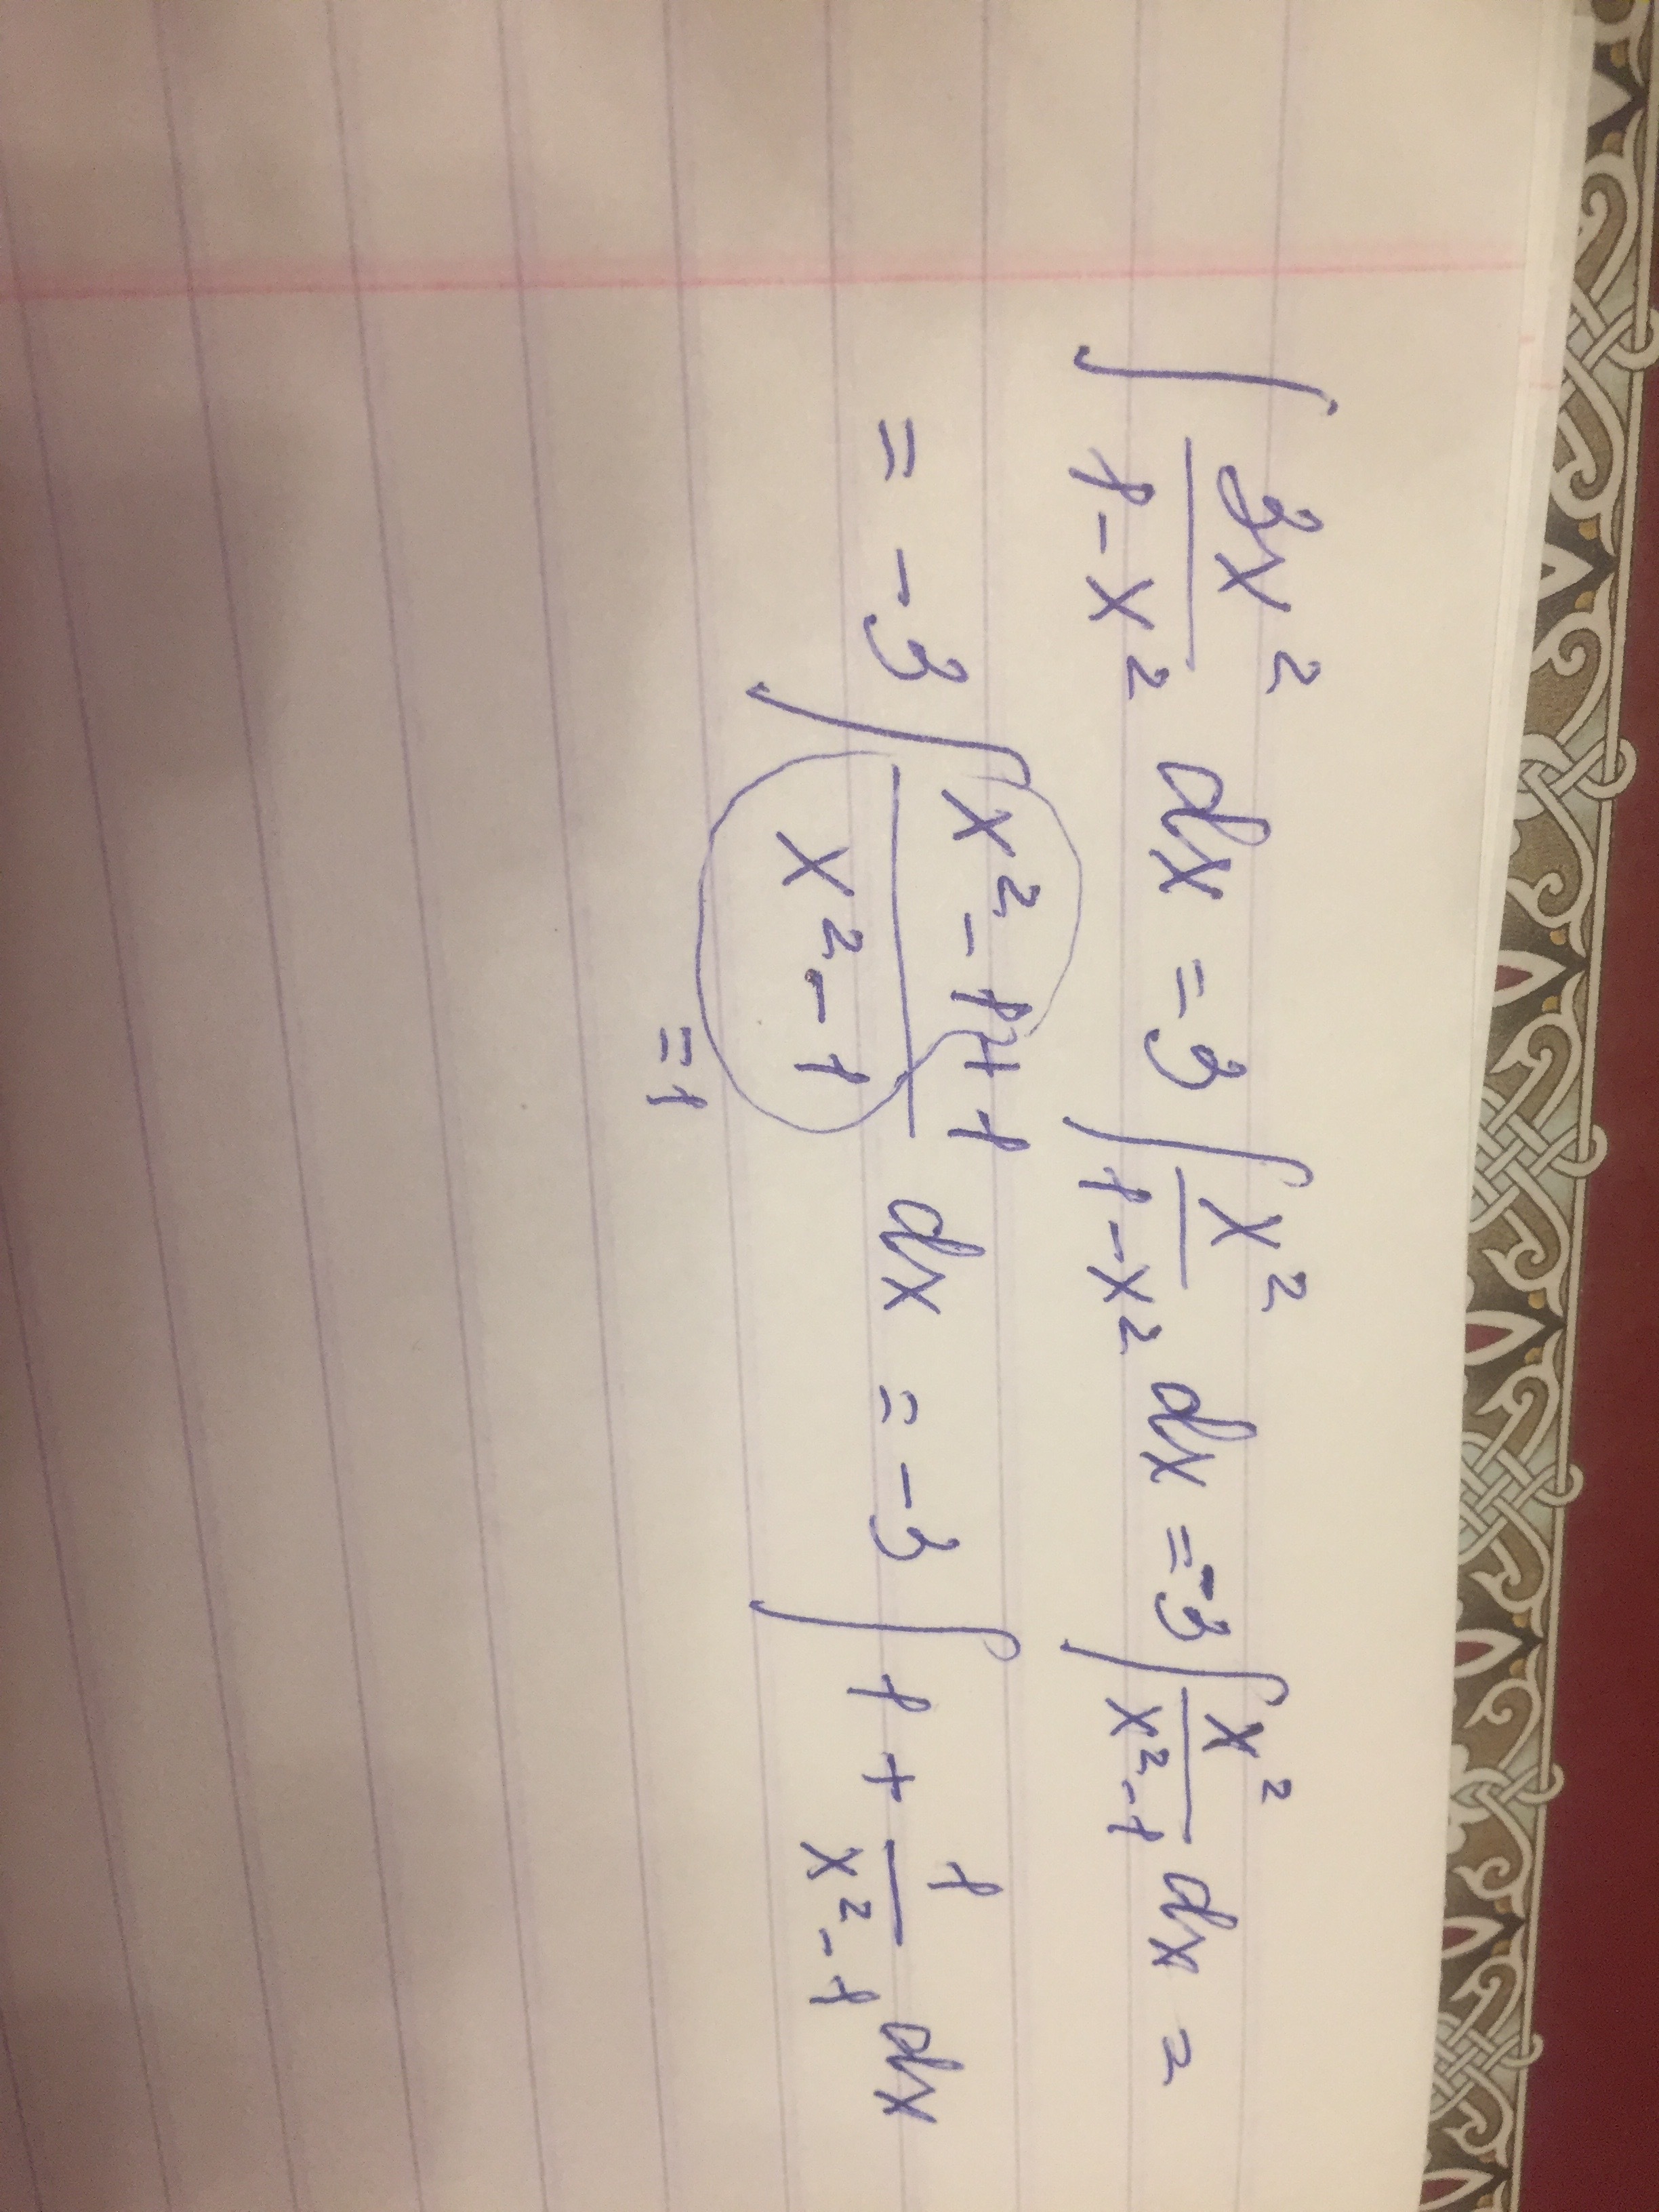 ∫ 3x²/(1-x²) dx = 3∫ x²/(1-x²) dx = -3∫ x²/(x²-1) dx =
= -3∫ (x²-1+1)/(x²-1) dx = -3∫ 1 + 1/(x²-1) dx
=1